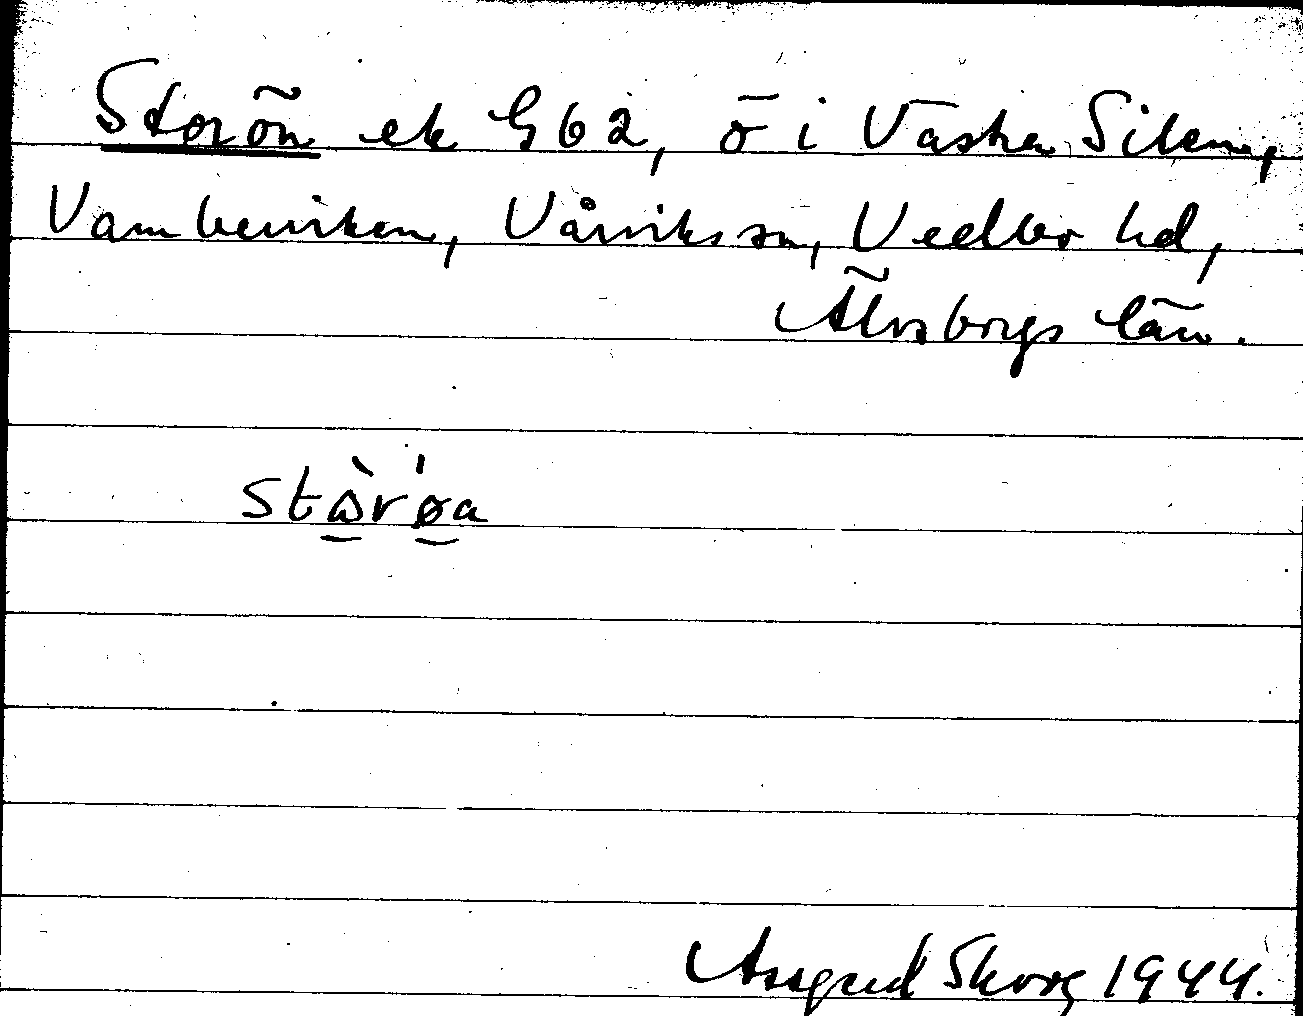 Storön ek G62, ö i Västra Silen,
Vambeviken, Vårviks sn, Vedbo hd,
Älvsborgs län.
stårøa
Assgerd Skorg 1944.